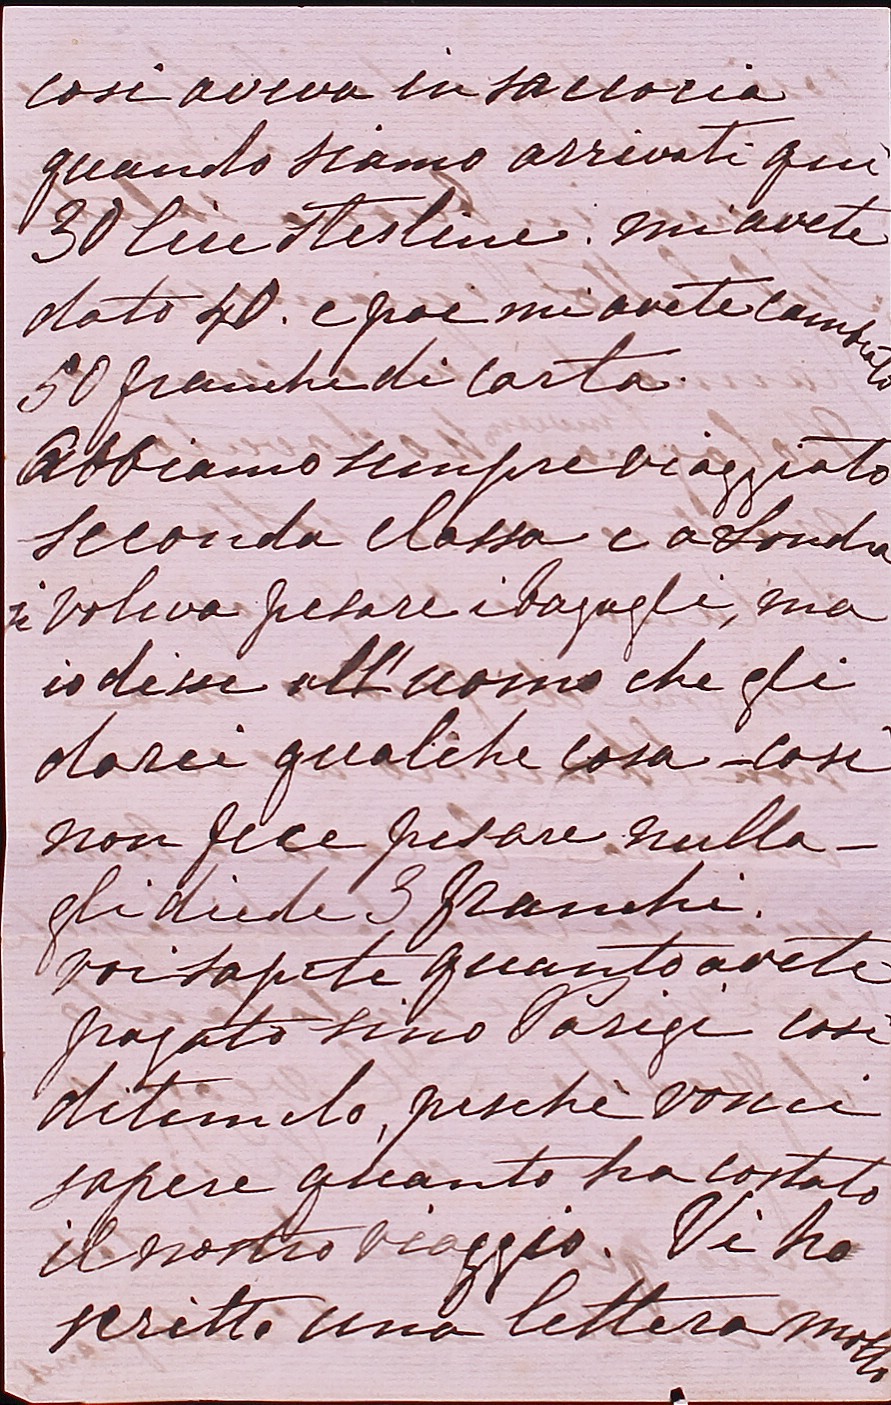 cosi aveva in saccocia
quando siamo arrivati qui
30 lire sterline. mi avete
dato 40. e poi mi avete cambiato
50 franchi di carta.
Abbiamo sempre viaggiato
seconda classa e a Londra
si voleva pesare i bagagli, ma
io disse all'uomo che gli
darei qualche cosa - cosi
non fece pesare nulla -
gli diede 3 franchi.
voi sapete quanto avete
pagato sino Parigi cosi
ditemelo, perchè vorrei
sapere quanto ha costato
il nostro viaggio. Vi ho
scritto una lettera molto